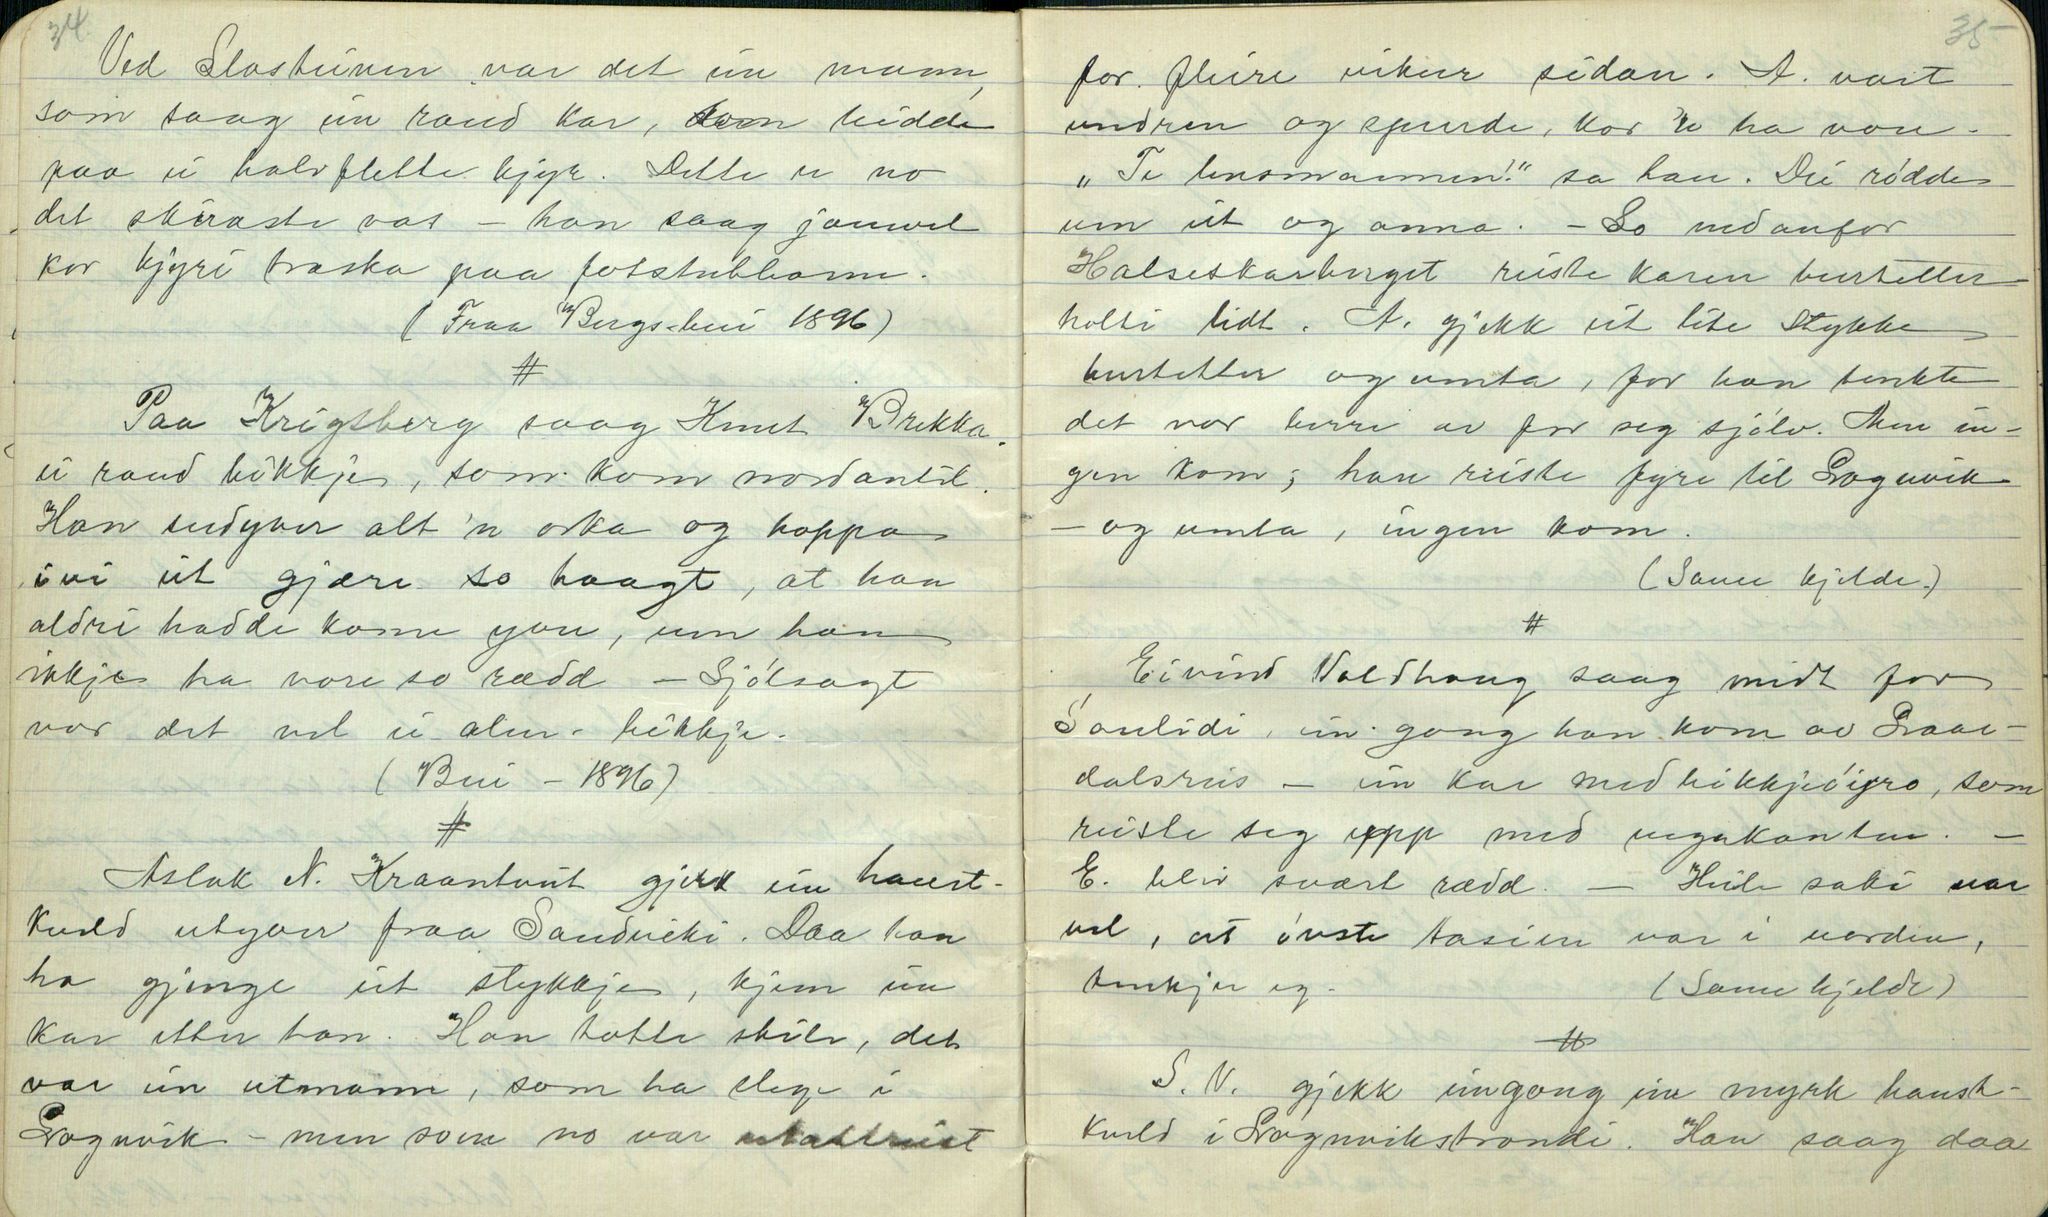 34
Ved Slosteinen var det ein mann,
som saag ein raud kar, som reidde
paa ei halvflette kjyr. Dette er no
det skiraste vas – han saag jamvel
kor kjyri traska paa fotstubbane.
(Fraa Bergs-bui 1896)
#
Paa Krigsberg saag Knut Brekka
ei raud bikkje, som kom nordantil.
Han sudyver alt 'n orka og hoppa
ivi eit gjære so haagt, at han
aldri hadde kome yve, um han
ikkje ha vore so rædd – Sjólsagt
var det vel ei almi. bikkje.
(Bui – 1896)
#
Aslak N. Kraantveit gjekk ein haust-
kveld utyver fraa Sandviki. Daa han
ha gjenge eit stykkje, kjem ein
kar etter han. Han totte skile, det
var ein utmann, som ha lege i
Rognvik – men som no var utattreist
35
for fleire vikur sidan. A. vart
undren og spurde, kor 'n ha vore.
"Te lensmannen!" sa han. Dei rødde
um eit og anna. – So nedanfor
Halseskarberget reiste karen burtetter
holti lidt. A. gjekk eit lite stykke
burtetter og venta, for han tenkte
det var berre av for seg sjólv. Men in-
gen kom; han reiste fyre til Rognvik
– og venta, ingen kom.
(Same kjelde.)
#
Eivind Valdhaug saag midt for
Saulidi, ein gong han kom av Graae-
dalsreis – ein kar med bikkjeóigro, som
reiste seg upp med vegakanten. –
E. blir svært rædd. – Heile saki var
vel, at óvste tasien var i vorden,
tenkjer eg. (Same kjelde)
#
S. V. gjekk eingong ein myrk haust-
kveld i Rognvikstrondi. Han saag daa